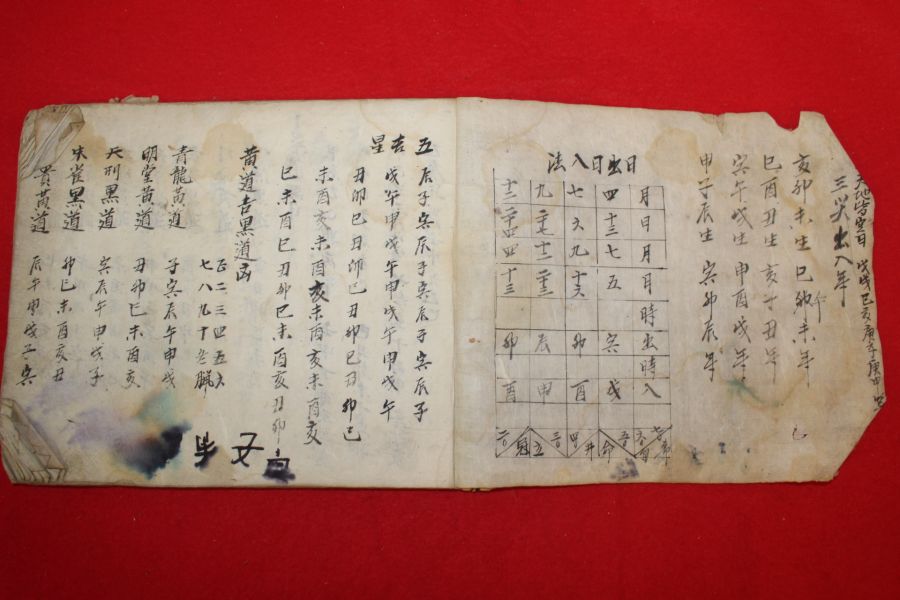 天地皆空日 戊戌己亥庚子庚申
三災出入年
亥卯未生 巳午未年
巳酉丑生 亥子丑年
寅午戌生 申酉戌年
甲子辰生 寅卯辰年
日出日入法
月日月月時出時入
四 十三 七 五 寅 戌
七 六 九 十六 卯 酉
九 二十七 十二 二十三 辰 申
十二 二十四 四 十三 卯 酉
五吉星
辰子寅辰子寅辰子寅辰子
戌午申戌午申戌午申戌午
丑卯巳丑卯巳丑卯巳丑卯巳
未酉亥未酉亥未酉亥未酉亥
巳未酉巳丑卯巳未酉亥丑卯
黄道吉黑道函
正二三四五六
七八九十至臘
青龍黃道 子寅辰午申戌
明堂黃道 丑卯巳未酉亥
天刑黑道 寅辰午申戌子
朱雀黑道 卯巳未酉亥丑
貴黃道 辰午申戌子寅